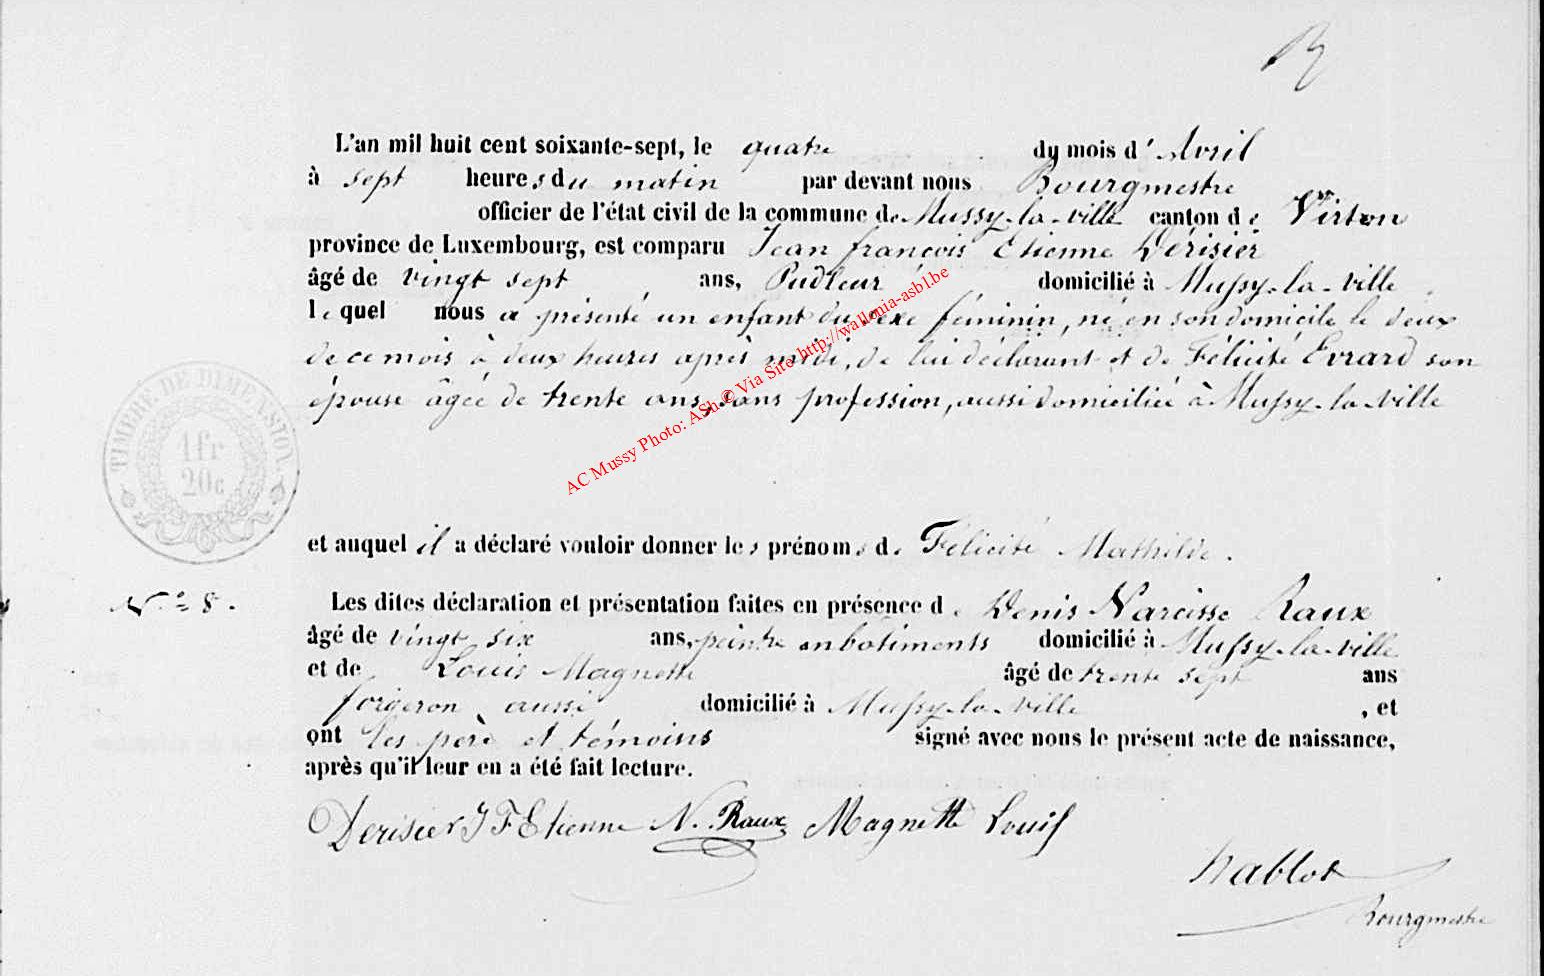 L'an mil huit cent soixante-sept, le quatre du mois d' Avril
à sept heures du matin par devant nous Bourgmestre
officier de l'état civil de la commune de Mussy-la-ville canton de Virton
province de Luxembourg, est comparu Jean françois Etienne Dérisier
âgé de vingt sept ans, Pudleur domicilié à Mussy-la-ville
lequel nous a présenté un enfant du sexe féminin, né en son domicile le deux
de ce mois à deux heures après midi, de lui déclarant et de Félicité Evrard son
épouse âgée de trente ans, sans profession, aussi domiciliée à Mussy-la-ville
AC Mussy Photo: ASh © Via Site http://wallonia-asbl.be
TIMBRE DE DIMENSION.
1fr
20c
et auquel il a déclaré vouloir donner les prénoms de Félicité Mathilde.
N.º 8.
Les dites déclaration et présentation faites en présence de Denis Narcisse Raux
âgé de vingt six ans, peintre en batiments domicilié à Mussy-la-ville
et de Louis Magnette âgé de trente sept ans
forgeron aussi domicilié à Mussy-la-ville , et
ont les père et témoins signé avec nous le présent acte de naissance,
après qu'il leur en a été fait lecture.
Derisier J F Etienne N. Raux Magnette Louis
hablot
Bourgmestre